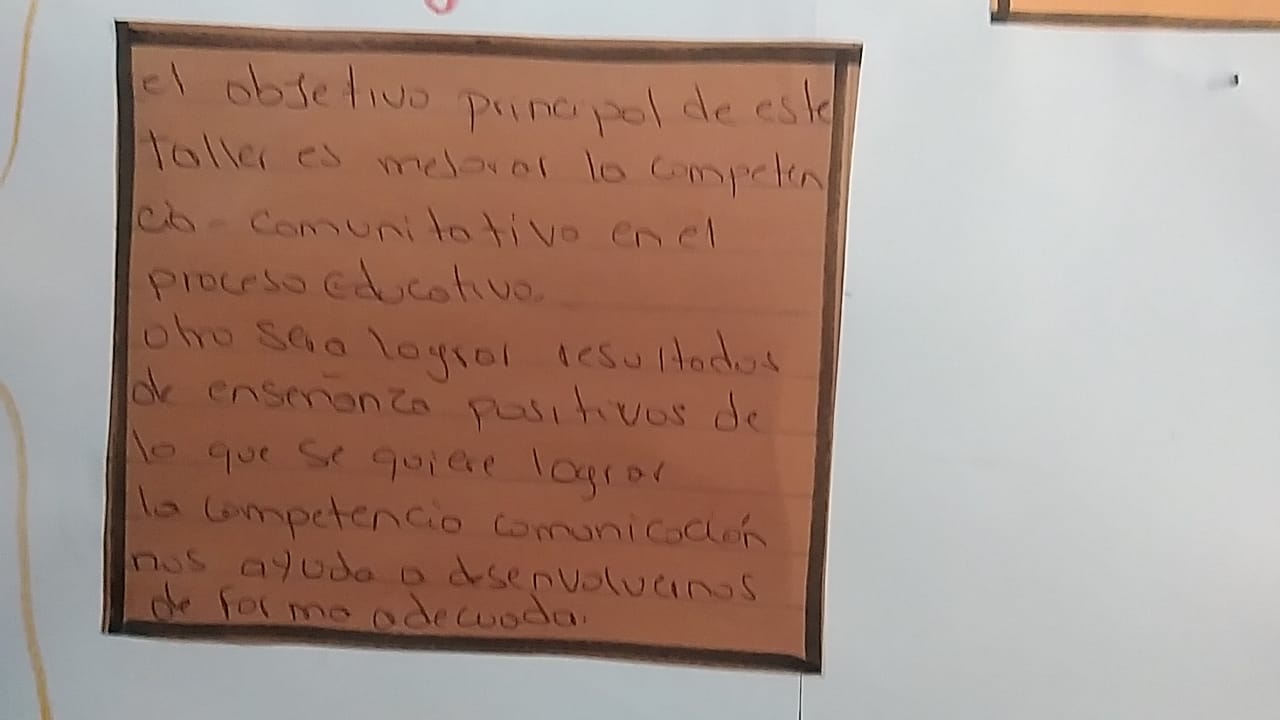 el objsetivo principal de este
taller es mejorar la competen
cia - comunitativa en el
proceso Educativo.
otro seria logsrar resultados
de enseñanza positivos de
lo que se quiere lograr
la competencia comunicación
nos ayuda a dsenvolvernos
de forma adecuada.